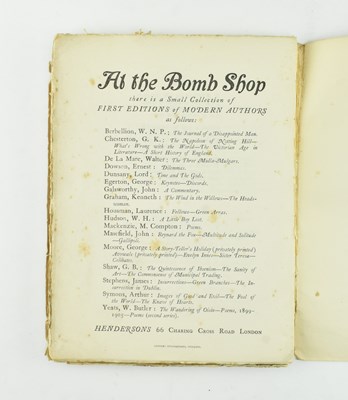 At the Bomb Shop
there is a Small Collection of
FIRST EDITIONS of MODERN AUTHORS
as follows:
Barbellion, W. N. P.: The Journal of a Disappointed Man.
Chesterton, G. K.: The Napoleon of Notting Hill—
What's Wrong with the World—The Victorian Age in
Literature—A Short History of England.
De La Mare, Walter: The Three Mulla-Mulgars.
Dowson, Ernest: Dilemmas.
Dunsany, Lord: Time and The Gods.
Egerton, George: Keynotes—Discords.
Galsworthy, John: A Commentary.
Graham, Kenneth: The Wind in the Willows—The Heads-
woman.
Housman, Laurence: Follows—Green Arras.
Hudson, W. H.: A Little Boy Lost.
Mackenzie, M. Compton: Poems.
Masefield, John: Reynard the Fox—Multitude and Solitude
—Gallipoli.
Moore, George: A Story-Teller's Holiday (privately printed)
Avowals (privately printed)—Evelyn Innes—Sister Teresa—
Celibates.
Shaw, G. B.: The Quintessence of Ibsenism—The Sanity of
Art—The Commonsense of Municipal Trading.
Stephens, James: Insurrections—Green Branches—The In-
surrection in Dublin.
Symons, Arthur: Images of Good and Evil—The Fool of
the World—The Knave of Hearts.
Yeats, W. Butler: The Wandering of Oisin—Poems, 1899-
1905—Poems (second series).
HENDERSONS 66 CHARING CROSS ROAD LONDON